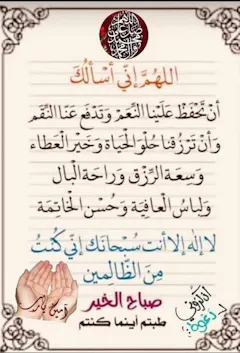 اللهُمَّ إِنِّي أَسْأَلُكَ
أَنْ تَحْفَظْ عَلَيْنَا النِّعَمْ وَتَدْفَعْ عَنَّا النِّقَمْ
وَأَنْ تَرْزُقْنَا حُلْوَ الْحَيَاةِ وَخَيْرَ الْعَطَاءِ
وَسِعَةِ الرِّزْقِ وَرَاحَةِ الْبَالِ
وَلِبَاسُ الْعَافِيَةِ وَحُسْنِ الْخَاتِمَةِ
لا إله إلا أنت سبحانك إني كنت
من الظالمين
صباح الخير
طبتم أينما كنتم